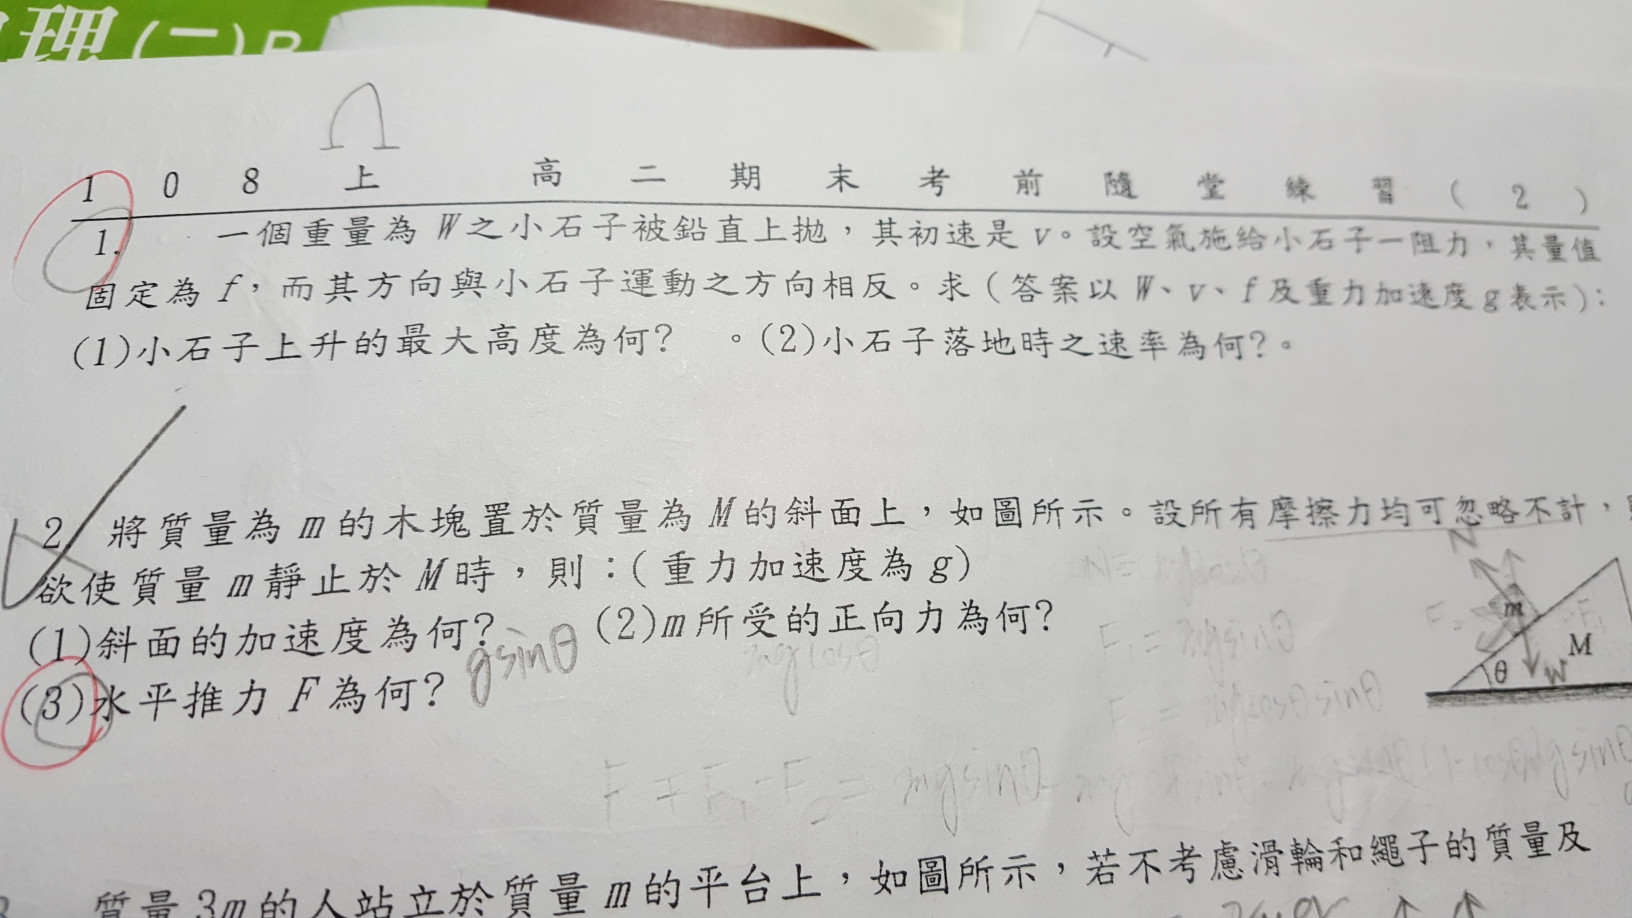 理(二)B
Ω
108上 高二期末考前隨堂練習(2)
1. 一個重量為 W之小石子被鉛直上拋，其初速是 v。設空氣施給小石子一阻力，其量值
固定為 f，而其方向與小石子運動之方向相反。求(答案以 W、v、f及重力加速度g表示)：
(1)小石子上升的最大高度為何? 。(2)小石子落地時之速率為何?。
2. 將質量為 m的木塊置於質量為 M的斜面上，如圖所示。設所有摩擦力均可忽略不計，
欲使質量 m靜止於 M時，則：(重力加速度為g)
(1)斜面的加速度為何? (2)m所受的正向力為何?
gsinθ mgcosθ
(3)水平推力 F為何?
N
m
M
θ
W
F₁ = mgsinθ
質量3m的人站立於質量 m的平台上，如圖所示，若不考慮滑輪和繩子的質量及